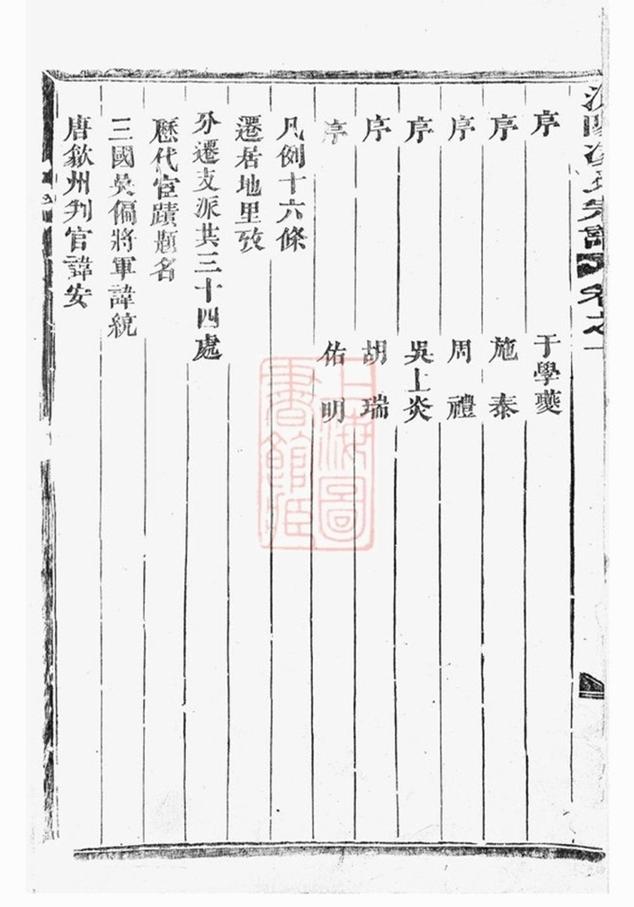 宗譜 卷之一
序 于學夔
序 施泰
序 周禮
序 吳上炎
序 胡瑞
序 佑明
凡例十六條
遷居地里攷
外遷支派共三十四處
歷代宦蹟題名
三國吳偏將軍諱統
唐歙州判官諱安
上海圖書館